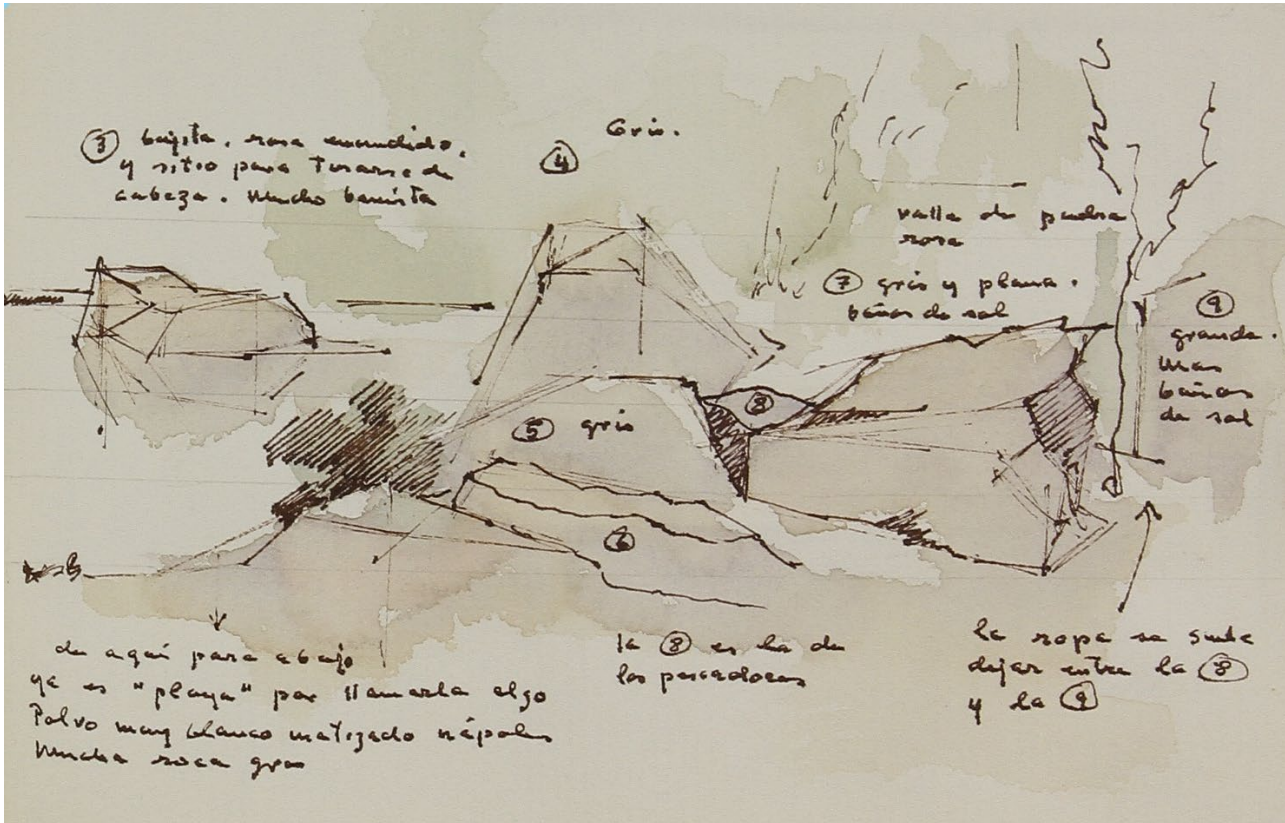 ③ bajita. rosa encendido.
y sitio para tirarse de
cabeza. Mucho bañista
④
Gris.
valla de piedra
rosa
⑦ gris y plana.
baños de sol
⑨
grande.
Mas
baños
de sol
⑧
⑤ gris
⑥
de aquí para abajo
ya es "playa" por llamarla algo
Polvo muy blanco matizado nápoles
Mucha roca gris
la ⑧ es la de
los pescadores
la ropa se suele
dejar entre la ⑧
y la ⑨